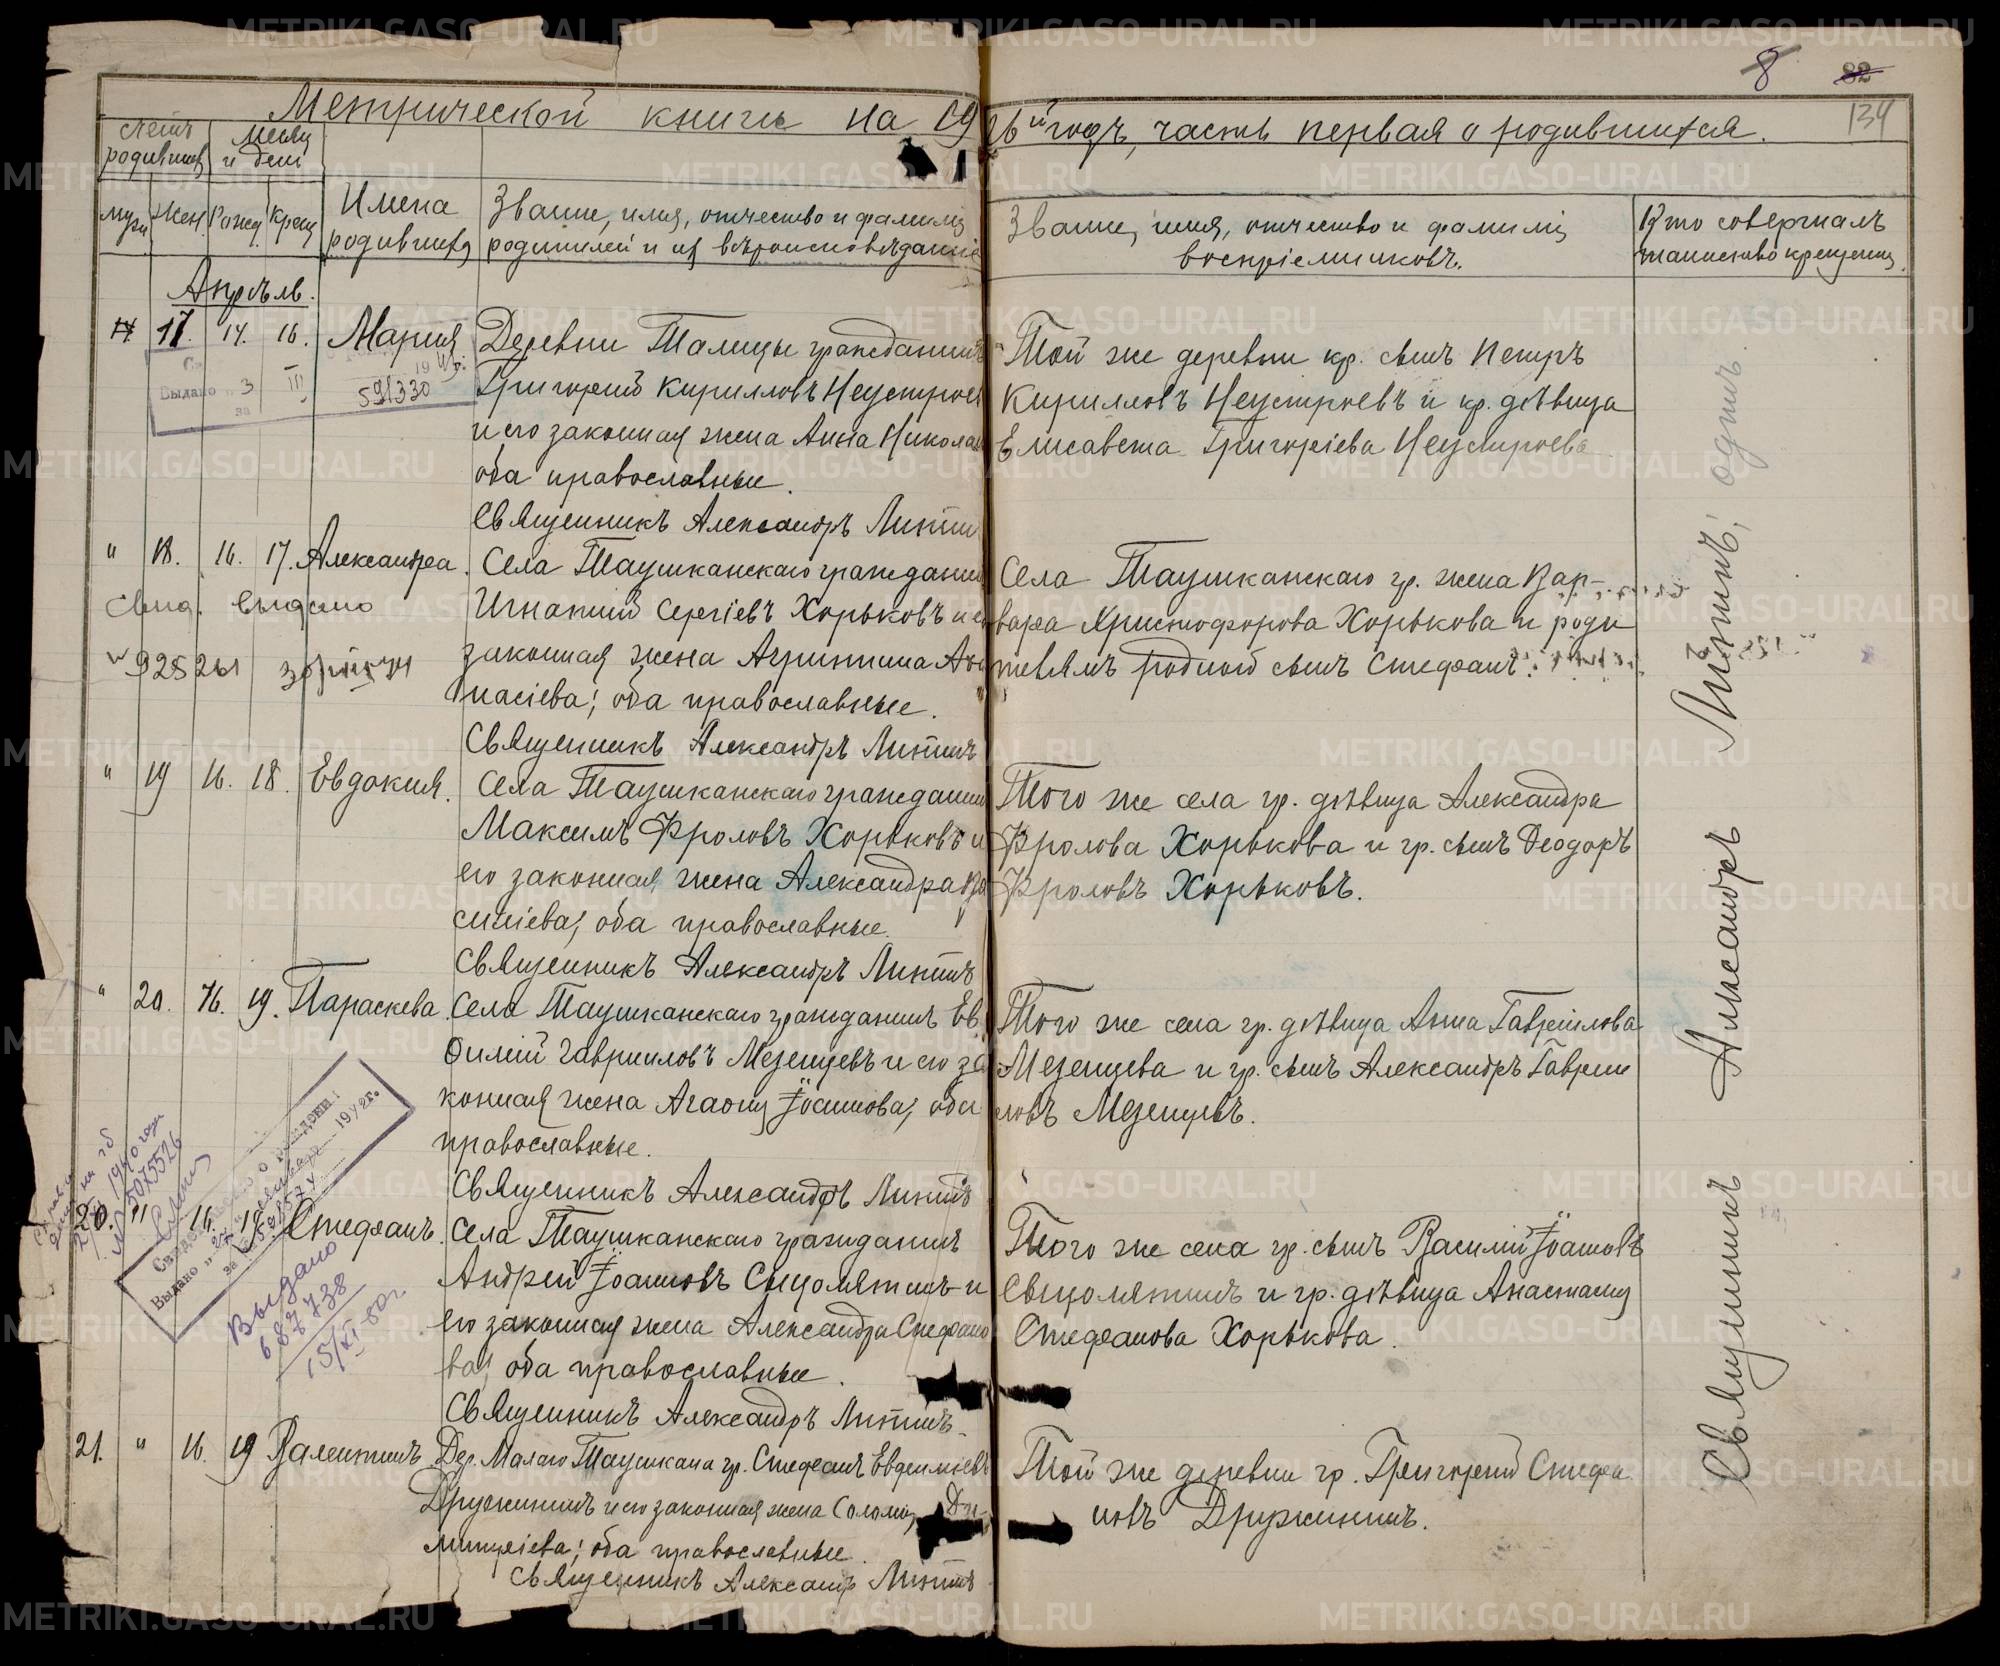 8 82
134
Метрической книги на 1926й годъ, часть первая о родившихся.
счетъ родившихъ
месяц и дни
муж. Жен. Рожд. Крещ.
Имена родившихся
Званіе, имя, отчество и фамилія
родителей и их вѣроисповѣданіе
Званіе, имя, отчество и фамилія
воспріемниковъ.
Кто совершалъ
таинство крещенія.
Апрѣль.
17. 14. 16. Мария
Деревни Талицы гражданинъ
Григорий Кирилловъ Неустроев
и его законная жена Анна Никола
оба православные.
Священникъ Александръ Литин
Той же деревни кр. сынъ Петръ
Кирилловъ Неустроевъ и кр. дѣвица
Елисавета Григоріева Неустроева
Выдано 3 III 19
за 591330
" 18. 16. 17. Александра.
Села Таушканскаго граждани
Игнатий Сергіевъ Хорьковъ и е
законная жена Агрипина Ана
насіева; оба православные.
Священникъ Александръ Литинъ
Села Таушканскаго гр. жена Вар-
вара Христофорова Хорькова и роди
телямъ родной сынъ Стефанъ.
Свид. выдано
925261
" 19 16. 18. Евдокия.
Села Таушканскаго граждани
Максимъ Фроловъ Хорьковъ и
его законная жена Александра Ва
силіева; оба православные.
Священникъ Александръ Литинъ
Того же села гр. дѣвица Александра
Фролова Хорькова и гр. сынъ Ѳеодоръ
Фроловъ Хорьковъ.
" 20. 16. 19. Параскева
Села Таушканскаго гражданинъ Ев
ѳимий Гавриловъ Мезенцевъ и его за
конная жена Агаѳия Іоаннова; оба
православные.
Священникъ Александръ Литинъ
Того же села гр. дѣвица Анна Гавриилова
Мезенцева и гр. сынъ Александръ Гаврии
ловъ Мезенцевъ.
Выдано
за
1942г.
1940 года
№ 5075526
20. " 16. 19. Стефанъ.
Села Таушканскаго гражданинъ
Андрей Іоанновъ Сыцолятинъ и
его законная жена Александра Стефано
ва; оба православные.
Священникъ Александръ Литинъ
Того же села гр. сынъ Василий Іоанновъ
Сыцолятинъ и гр. дѣвица Анастасия
Стефанова Хорькова.
Выдано
687738
15/XI-80г.
21. " 16. 19 Валентинъ
Дер. Малаго Таушкана гр. Стефанъ Евдокимовъ
Дружининъ и его законная жена Соломия Ди-
митріева; оба православные.
Священникъ Александр Литинъ
Той же деревни гр. Григорий Стефа
новъ Дружининъ.
Священникъ Александръ Литинъ; одинъ.